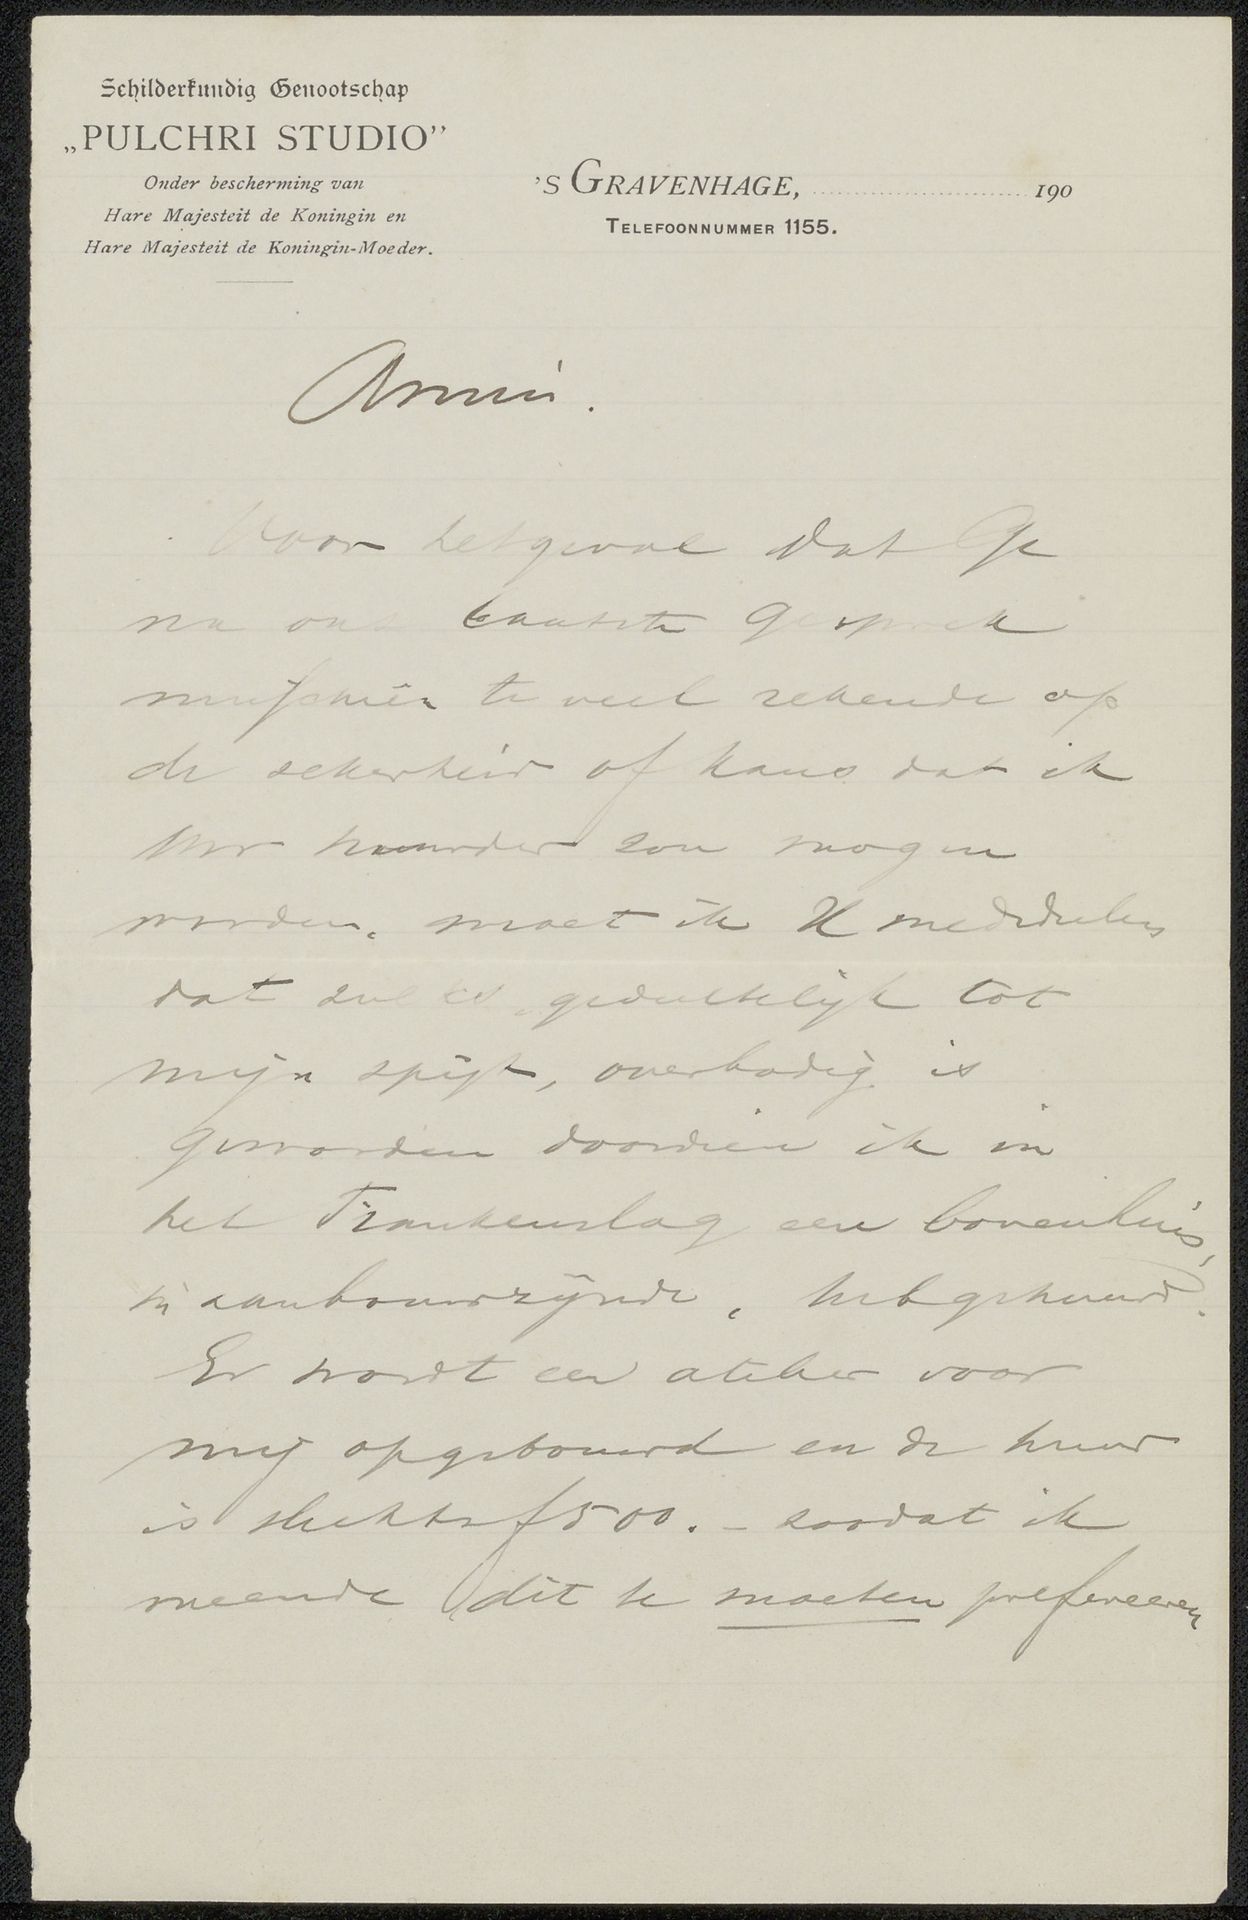 Schilderkundig Genootschap
„PULCHRI STUDIO”
Onder bescherming van
Hare Majesteit de Koningin en
Hare Majesteit de Koningin-Moeder.
'S GRAVENHAGE, 190
TELEFOONNUMMER 1155.
Amici.
Voor hetgeval dat Ge
na ons laatste gesprek
misschien te veel rekende op
de zekerheid of kans dat ik
Uw huurder zou mogen
worden, moet ik U mededeelen
dat zulks, gedeeltelijk tot
mijn spijt, overbodig is
geworden doordien ik in
het Frankenslag een bovenhuis,
in aanbouwzijnde, heb gehuurd.
Er wordt een atelier voor
mij opgebouwd en de huur
is slechts f500.- zoodat ik
meende dit te moeten prefereeren